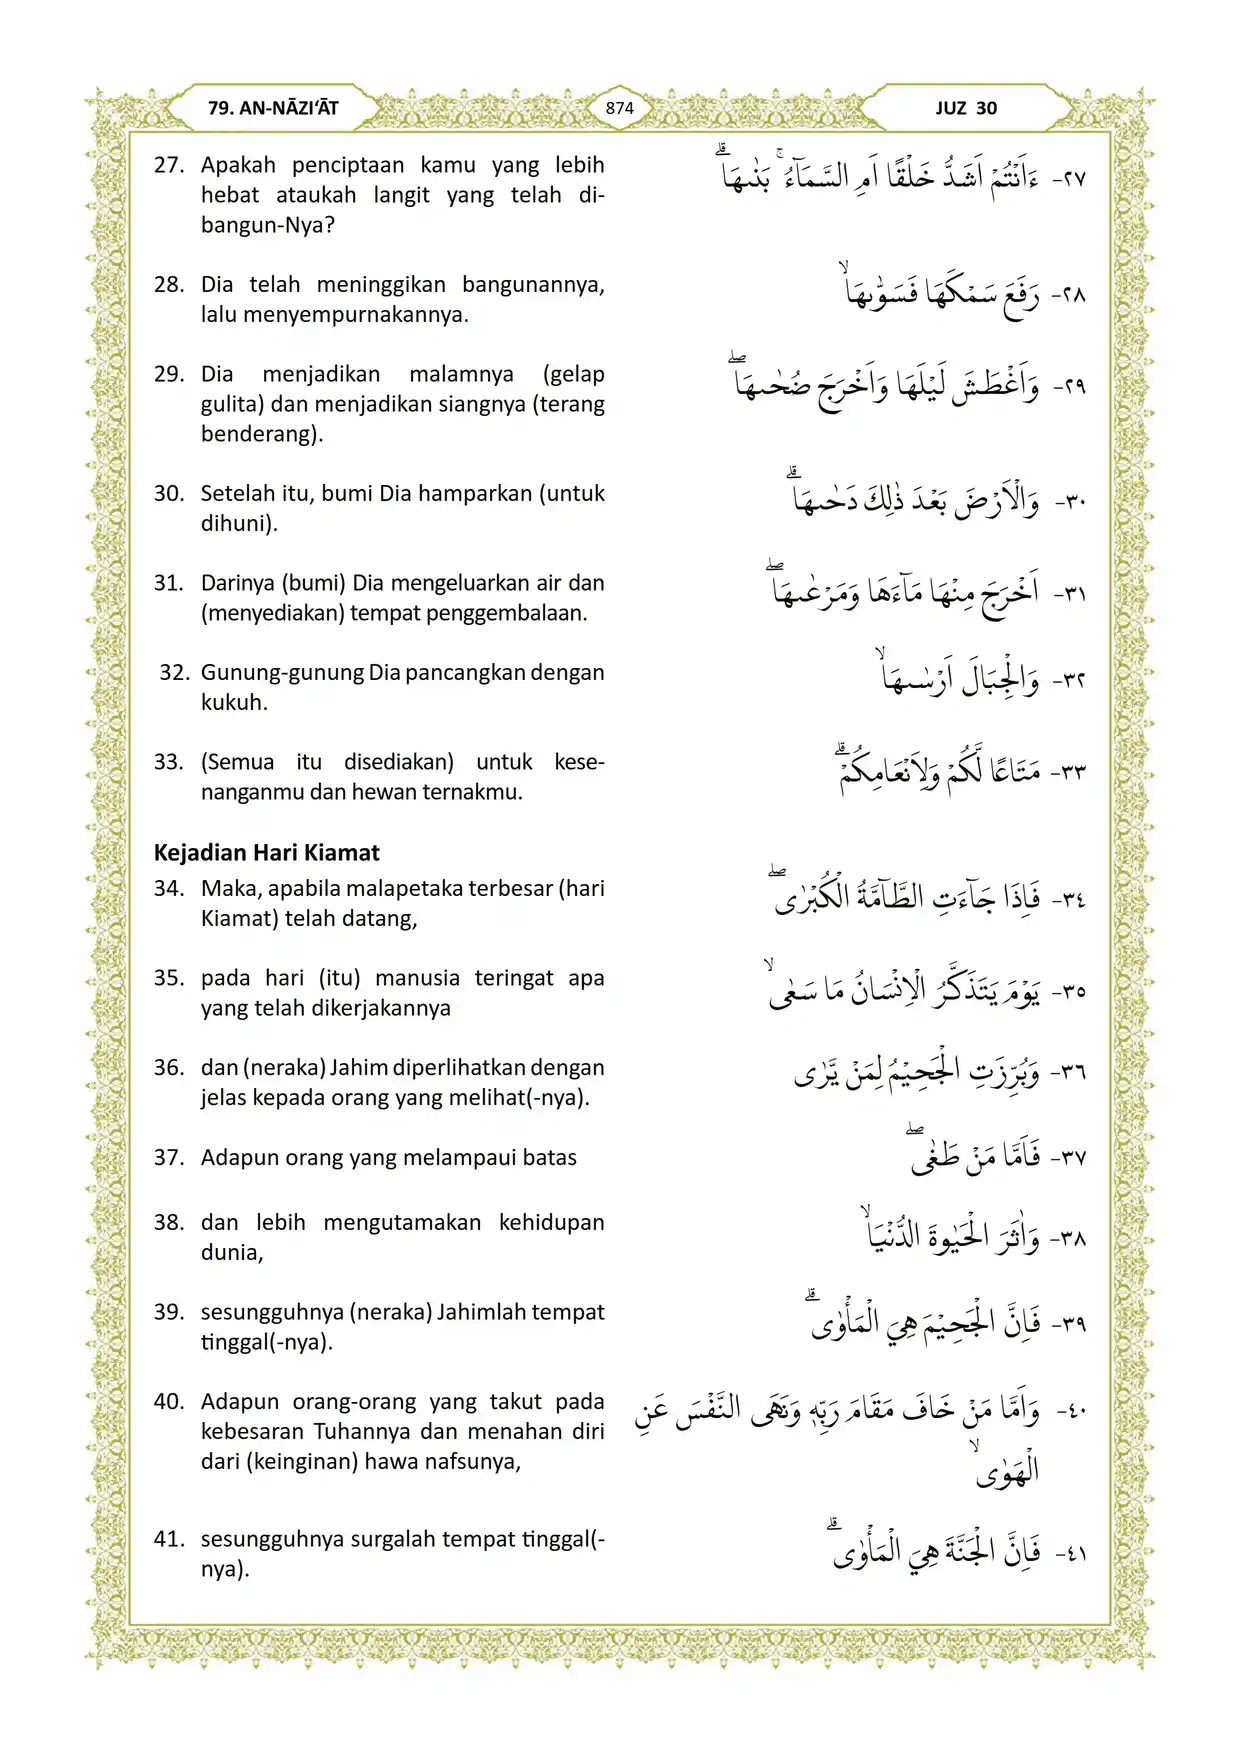 79. AN-NĀZI‘ĀT
874
JUZ 30
27. Apakah penciptaan kamu yang lebih
hebat ataukah langit yang telah di-
bangun-Nya?
٢٧- ءَاَنْتُمْ اَشَدُّ خَلْقًا اَمِ السَّمَاۤءُ ۚ بَنٰىهَاۗ
28. Dia telah meninggikan bangunannya,
lalu menyempurnakannya.
٢٨- رَفَعَ سَمْكَهَا فَسَوّٰىهَاۙ
29. Dia menjadikan malamnya (gelap
gulita) dan menjadikan siangnya (terang
benderang).
٢٩- وَاَغْطَشَ لَيْلَهَا وَاَخْرَجَ ضُحٰىهَاۖ
30. Setelah itu, bumi Dia hamparkan (untuk
dihuni).
٣٠- وَالْاَرْضَ بَعْدَ ذٰلِكَ دَحٰىهَاۗ
31. Darinya (bumi) Dia mengeluarkan air dan
(menyediakan) tempat penggembalaan.
٣١- اَخْرَجَ مِنْهَا مَاۤءَهَا وَمَرْعٰىهَاۖ
32. Gunung-gunung Dia pancangkan dengan
kukuh.
٣٢- وَالْجِبَالَ اَرْسٰىهَاۙ
33. (Semua itu disediakan) untuk kese-
nanganmu dan hewan ternakmu.
٣٣- مَتَاعًا لَّكُمْ وَلِاَنْعَامِكُمْۗ
Kejadian Hari Kiamat
34. Maka, apabila malapetaka terbesar (hari
Kiamat) telah datang,
٣٤- فَاِذَا جَاۤءَتِ الطَّاۤمَّةُ الْكُبْرٰىۖ
35. pada hari (itu) manusia teringat apa
yang telah dikerjakannya
٣٥- يَوْمَ يَتَذَكَّرُ الْاِنْسَانُ مَا سَعٰىۙ
36. dan (neraka) Jahim diperlihatkan dengan
jelas kepada orang yang melihat(-nya).
٣٦- وَبُرِّزَتِ الْجَحِيْمُ لِمَنْ يَّرٰى
37. Adapun orang yang melampaui batas
٣٧- فَاَمَّا مَنْ طَغٰىۖ
38. dan lebih mengutamakan kehidupan
dunia,
٣٨- وَاٰثَرَ الْحَيٰوةَ الدُّنْيَاۙ
39. sesungguhnya (neraka) Jahimlah tempat
tinggal(-nya).
٣٩- فَاِنَّ الْجَحِيْمَ هِيَ الْمَأْوٰىۗ
40. Adapun orang-orang yang takut pada
kebesaran Tuhannya dan menahan diri
dari (keinginan) hawa nafsunya,
٤٠- وَاَمَّا مَنْ خَافَ مَقَامَ رَبِّهٖ وَنَهَى النَّفْسَ عَنِ
الْهَوٰىۙ
41. sesungguhnya surgalah tempat tinggal(-
nya).
٤١- فَاِنَّ الْجَنَّةَ هِيَ الْمَأْوٰىۗ